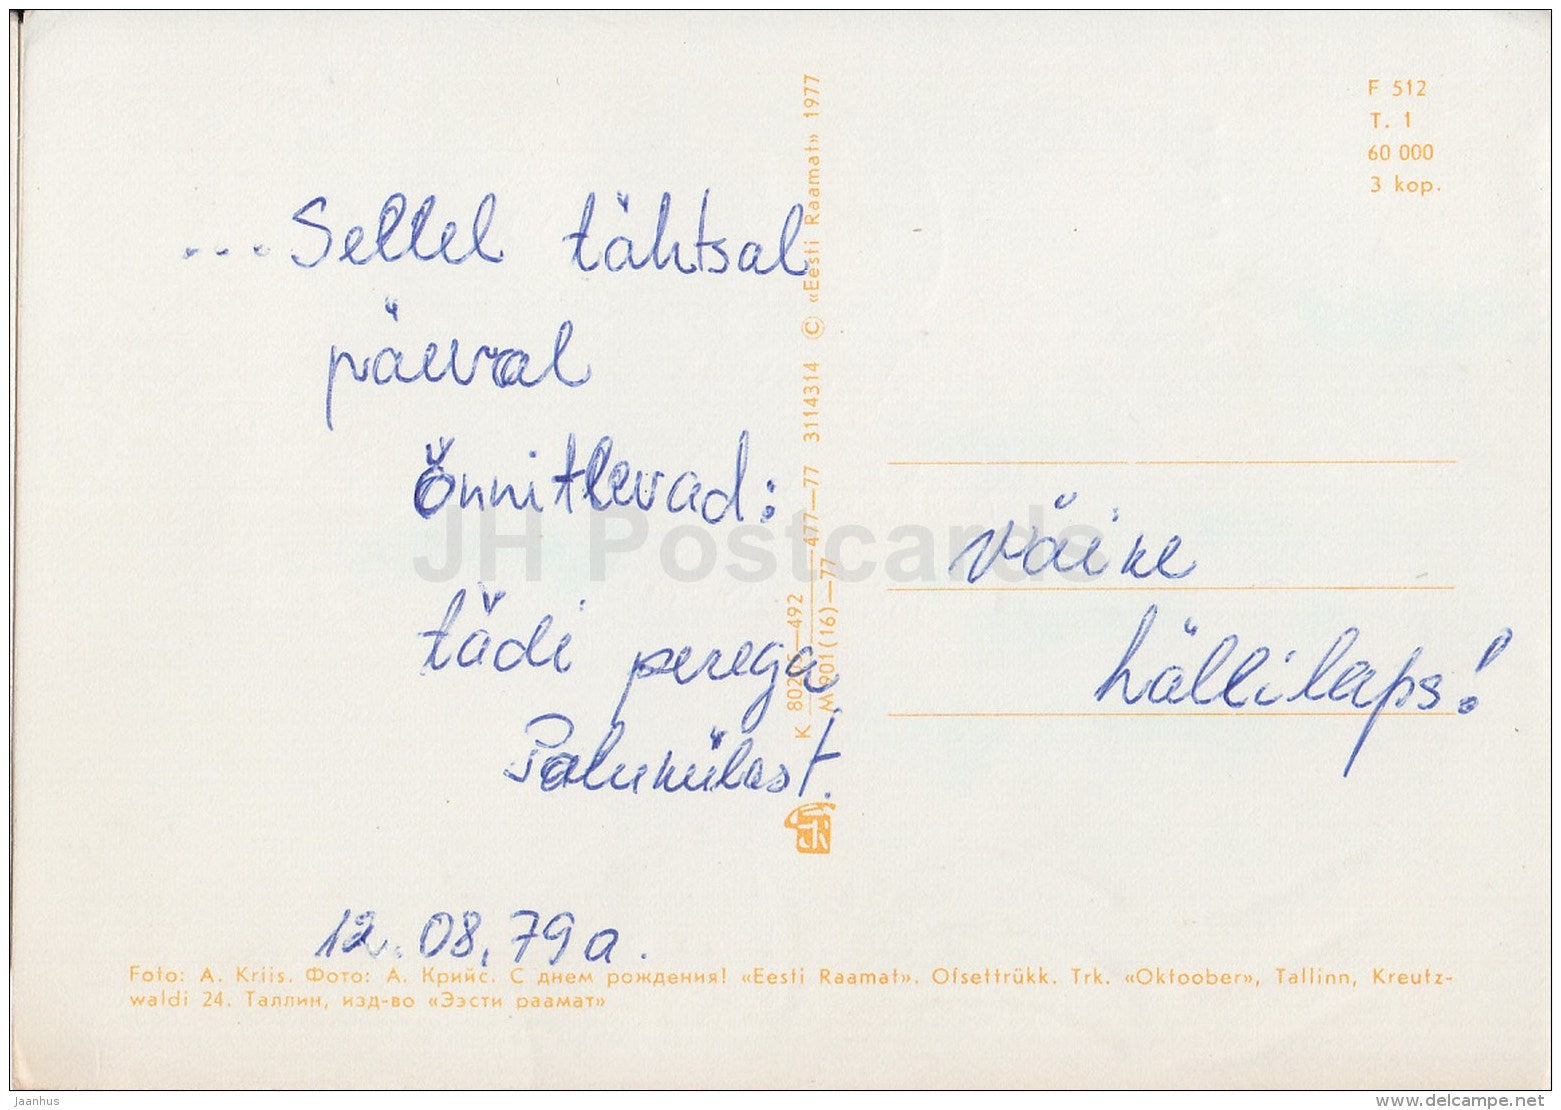 F 512
T. 1
60 000
3 kop.
... Sellel tähtsal
päeval
õnnitlevad:
tädi perega
Palukülast.
12.08.79a.
väike
hällilaps!
«Eesti Raamat» 1977
3114314 ©
477—77
M 901(16)—77
JH Postcards
Foto: A. Kriis. Фото: А. Крийс. С днем рождения! «Eesti Raamat». Ofsettrükk. Trk. «Oktoober», Tallinn, Kreutz-
waldi 24. Таллин, изд-во «Ээсти раамат»
Jaanhus
www.delcampe.net